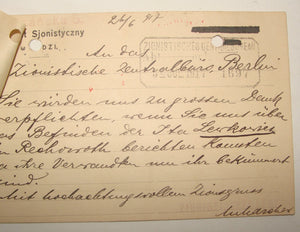 26/6 17.
t Sjonistyczny
ODZI.
An das
ZIONISTISCHES ZENTRALBUREAU
Zionistische Zentralbüro, Berlin
1917
Sie würden uns zu grossen Dank
verpflichten, wenn Sie uns über
das Befinden der Frl. Lewkowicz
in Rechowoth berichten könnten
da ihre Verwandten um ihr bekümmert
sind.
Mit hochachtungsvollem Zionsgruss